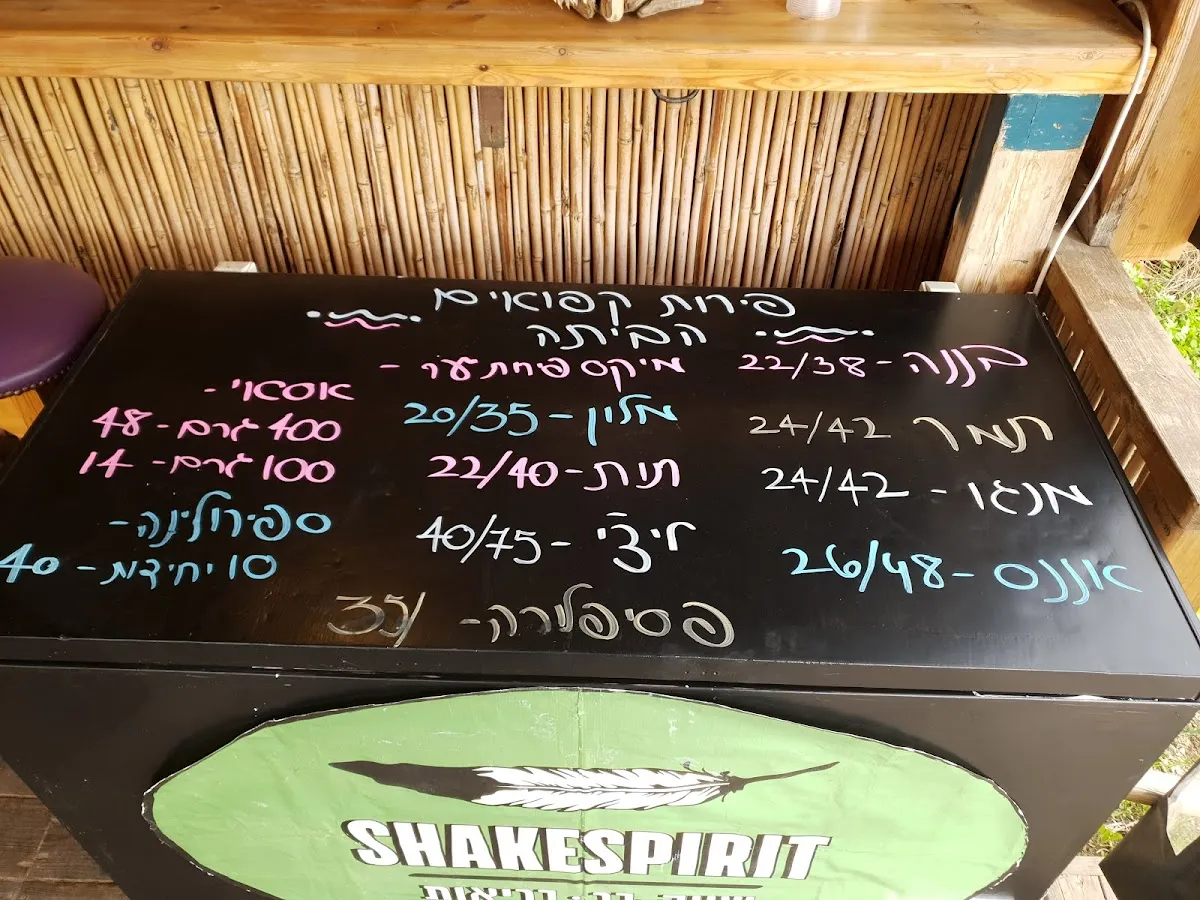 פירות קפואים
הביתה
בננה - 22/38
תמר 24/42
מנגו - 24/42
אננס - 26/48
מיקס פירות יער -
מלון - 20/35
תות - 22/40
ליצ'י - 40/75
פסיפלורה - 35/
אסאי -
400 גרם - 48
100 גרם - 14
ספירולינה -
10 יחידות - 40
SHAKESPIRIT